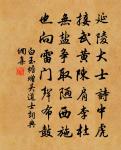 延陵大士詩中虎
接武黃陳肩李杜
無鹽爭取陋西施
也向雷門撾布鼓
白玉蟾贈吳道士詞典
網集